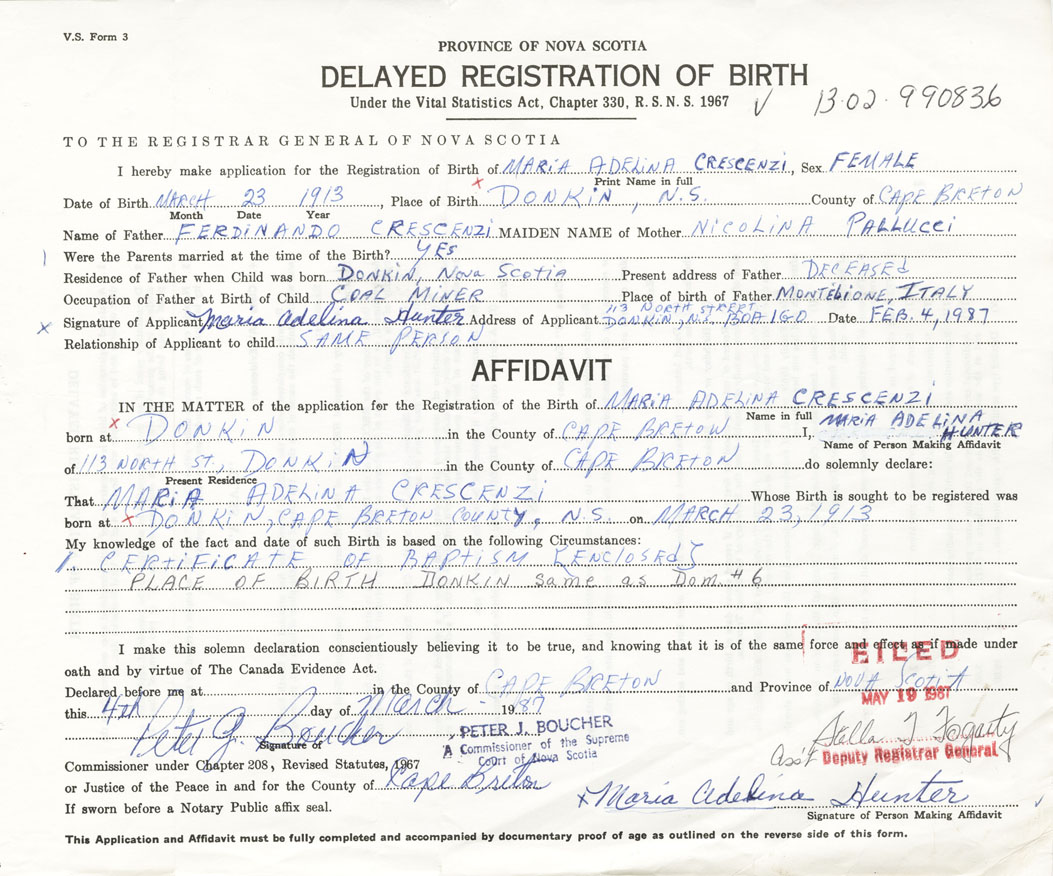 V.S. Form 3
PROVINCE OF NOVA SCOTIA
DELAYED REGISTRATION OF BIRTH
Under the Vital Statistics Act, Chapter 330, R.S.N.S. 1967 ✓ 13-02-990836
TO THE REGISTRAR GENERAL OF NOVA SCOTIA
I hereby make application for the Registration of Birth of MARIA ADELINA CRESCENZI, Sex FEMALE
Print Name in full
Date of Birth MARCH 23 1913, Place of Birth x DONKIN, N.S. County of CAPE BRETON
Month Date Year
Name of Father FERDINANDO CRESCENZI MAIDEN NAME of Mother NICOLINA PALLUCCI
Were the Parents married at the time of the Birth? YES
Residence of Father when Child was born DONKIN, NOVA SCOTIA Present address of Father DECEASED
Occupation of Father at Birth of Child COAL MINER Place of birth of Father MONTELIONE, ITALY
x Signature of Applicant Maria Adelina Hunter Address of Applicant 113 NORTH STREET DONKIN, N.S. B0A 1G0 Date FEB. 4, 1987
Relationship of Applicant to child SAME PERSON
AFFIDAVIT
IN THE MATTER of the application for the Registration of the Birth of MARIA ADELINA CRESCENZI
Name in full
born at x DONKIN in the County of CAPE BRETON I, MARIA ADELINA HUNTER
Name of Person Making Affidavit
of 113 NORTH ST., DONKIN in the County of CAPE BRETON do solemnly declare:
Present Residence
That MARIA ADELINA CRESCENZI Whose Birth is sought to be registered was
born at x DONKIN, CAPE BRETON COUNTY, N.S. on MARCH 23, 1913
My knowledge of the fact and date of such Birth is based on the following Circumstances:
1. CERTIFICATE OF BAPTISM [ENCLOSED]
PLACE OF BIRTH DONKIN Same as Dom. #6
I make this solemn declaration conscientiously believing it to be true, and knowing that it is of the same force and effect as if made under
oath and by virtue of The Canada Evidence Act.
FILED
Declared before me at in the County of CAPE BRETON and Province of NOVA SCOTIA
MAY 19 1987
this 4th day of March 1987
Peter J. Boucher
Signature of
PETER J. BOUCHER
A Commissioner of the Supreme
Court of Nova Scotia
Stella T Fogarty
Ass't Deputy Registrar General
Commissioner under Chapter 208, Revised Statutes, 1967
or Justice of the Peace in and for the County of Cape Breton
x Maria Adelina Hunter
If sworn before a Notary Public affix seal.
Signature of Person Making Affidavit
This Application and Affidavit must be fully completed and accompanied by documentary proof of age as outlined on the reverse side of this form.